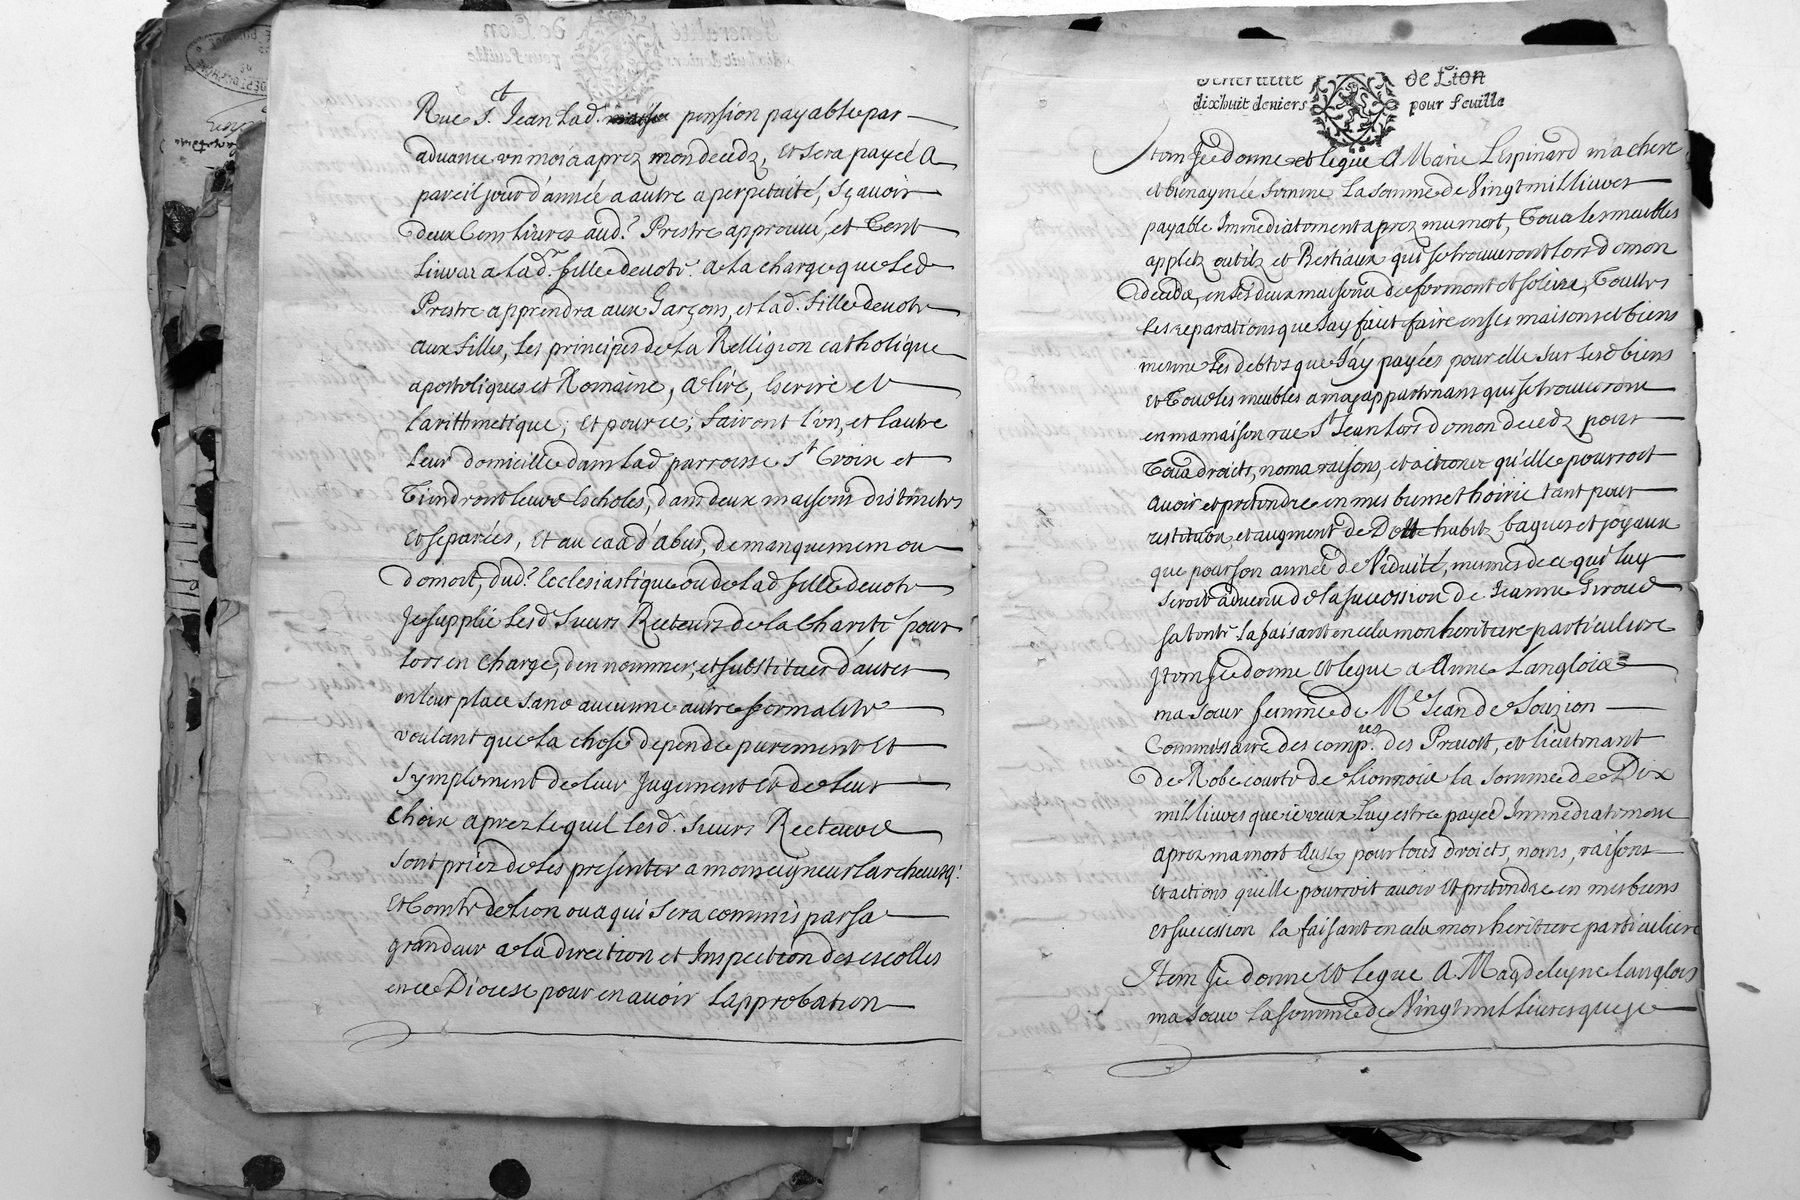 Rue St. Jean lad. pension payable par
aduance vn mois aprez mon decedz, et sera payéé a
pareil jour d'année a autre a perpetuité, sçauoir
deux Cens liures aud. Prestre approuué, et Cent
liures a lad. fille deuote. a la charge que led
Prestre apprendra aux Garçons, et lad. fille deuote
aux filles, les principes de la Relligion catholique
apostolique et Romaine, a lire, escrire et
larithmetique, et pour ce, fairont l'vn, et l'autre
leur domicille dans lad. parroisse Ste Croix et
tiendront leurs escholes, dans deux maisons distinctes
et separées, et au cas d'abus, de manquement ou
de mort, dud. Ecclesiastique ou de lad fille deuote
Je supplie lesd sieurs Recteurs de la Charité pour
lors en charge, d'en nommer, et substituer d'autres
en leur place sans aucunne autre formalité
voulant que la chose depende purement et
symplement de leur jugement et de leur
choix aprez lequel lesd. sieurs Recteurs
sont priez de les presenter a monseigneur larcheuesq.
et Comte de Lion ou a qui sera commis par sa
grandeur a la direction et Inspection des escolles
en ce Diocese pour en auoir lapprobation
Generalité de Lion
dixhuit deniers pour feuille
Item Je donne et legue a Marie Lespinard ma chere
et bienaymée femme la somme de Vingt mil liures
payable Immediatement aprez ma mort, tous les meubles
applelz outilz et Bestiaux qui se trouueront lors de mon
decedz, en ses deux maisons de formont et soleize, touttes
les reparations que jay faict faire en ses maisons et biens
mesme les debtes que j'ay payées pour elle sur lesd biens
et tous les meubles a moy appartenans qui se trouueront
en ma maison rue St Jean lors de mon decedz pour
tous droicts, noms raisons, et actions qu'elle pourroit
auoir et pretendre en mes biens et hoirie tant pour
restitution, et augment de Dott habitz bagues et joyaux
que pour son année de Viduité, mesmes de ce qui luy
seroit aduenu de la succession de Jeanne Giroud
sa tante la faisant en cela mon heritiere particuliere
Item Je donne et legue a Anne Langlois
ma sœur femme de Me Jean de Souzion
Commissaire des compes. des Preuost, et lieutenant
de Robe courte de Lionnois la somme de Dix
mil liures que je veux luy estre payéé Immediatement
aprez ma mort aussy pour tous droicts, noms, raisons
et actions quelle pourroit auoir et pretendre en mes biens
et succession la faisant en cela mon heritiere particuliere
Item Je donne et legue a Magdeleyne langlois
ma sœur la somme de Vingt mil liures que je